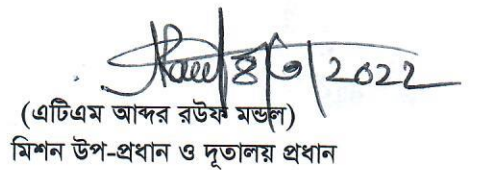 ৪/৩/2022
(এটিএম আব্দর রউফ মন্ডল)
মিশন উপ-প্রধান ও দূতালয় প্রধান